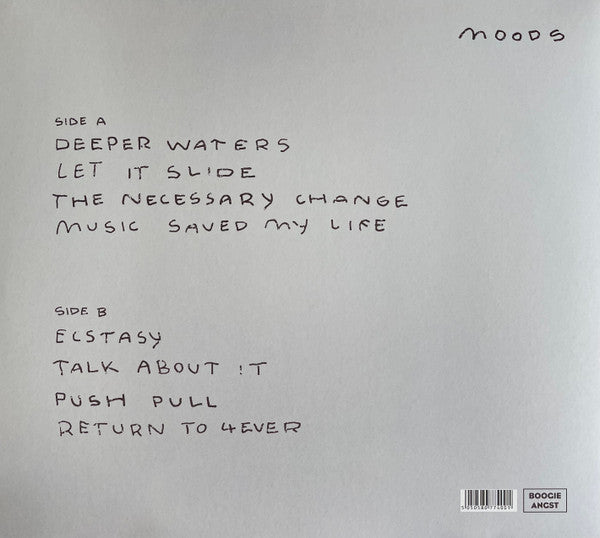 MOODS
SIDE A
DEEPER WATERS
LET IT SLIDE
THE NECESSARY CHANGE
MUSIC SAVED MY LIFE
SIDE B
ECSTASY
TALK ABOUT IT
PUSH PULL
RETURN TO 4EVER
BOOGIE
ANGST